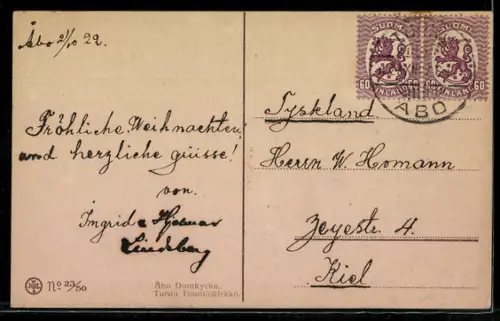 Åbo 2/10 22.
Fröhliche Weihnachten
und herzliche grüsse!
von.
Ingrid & Hjalmar
Lindeberg
No 23/50
Åbo Domkyrka.
Turun Tuomiokirkko.
SUOMI SUOMI
60 FINLAND 60 FINLAND 60
ÅBO
Tyskland
Herrn W. Homann
Zeyestr. 4.
Kiel